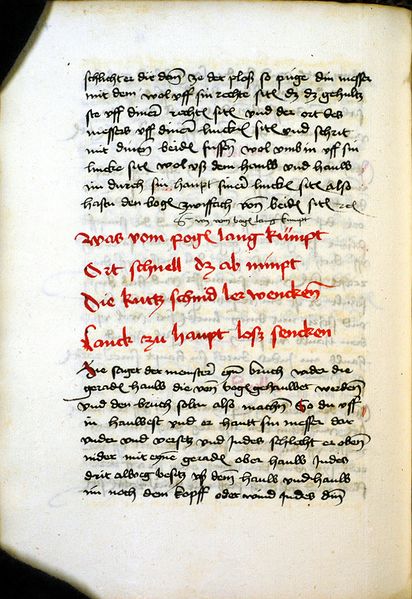 schlicht er dir dan zu der ploß so püge din messer
mit dem wol vff sin rechte sitē dz dz gehultz
ste vff dinēr rechtē sitē vnd der ort des
messers vff dinēr linckē sitē vnd schrit
mit dinen beidē fussen wol vmb in vff sin
lincke sitē wol vß dem hauw vnd hauw
im durch sin haupt sinēr linckē sitē also
hastu den bogē zwiffach von beidē sitē
von bogē lang kumpt
Was vom pogē lang kümpt
Ort schnell dz ab nimpt
Die kurtz schnid ler wencken
Lanck zu haupt losz sencken
Hie saget der meinster bruch wider die
geradē hauw die vom bogē gehauwet werden
vnd den bruch soltu also machen So du vff
in hauwest vnd er hautt sin messer dar
vnder vnd versetz vnd Indes schlecht er oben
nider mit eyne geradē ober hauw Indes
drit alweg besitz vß dem hauw vnd hauw
im noch dem kopff oder wind Indes din